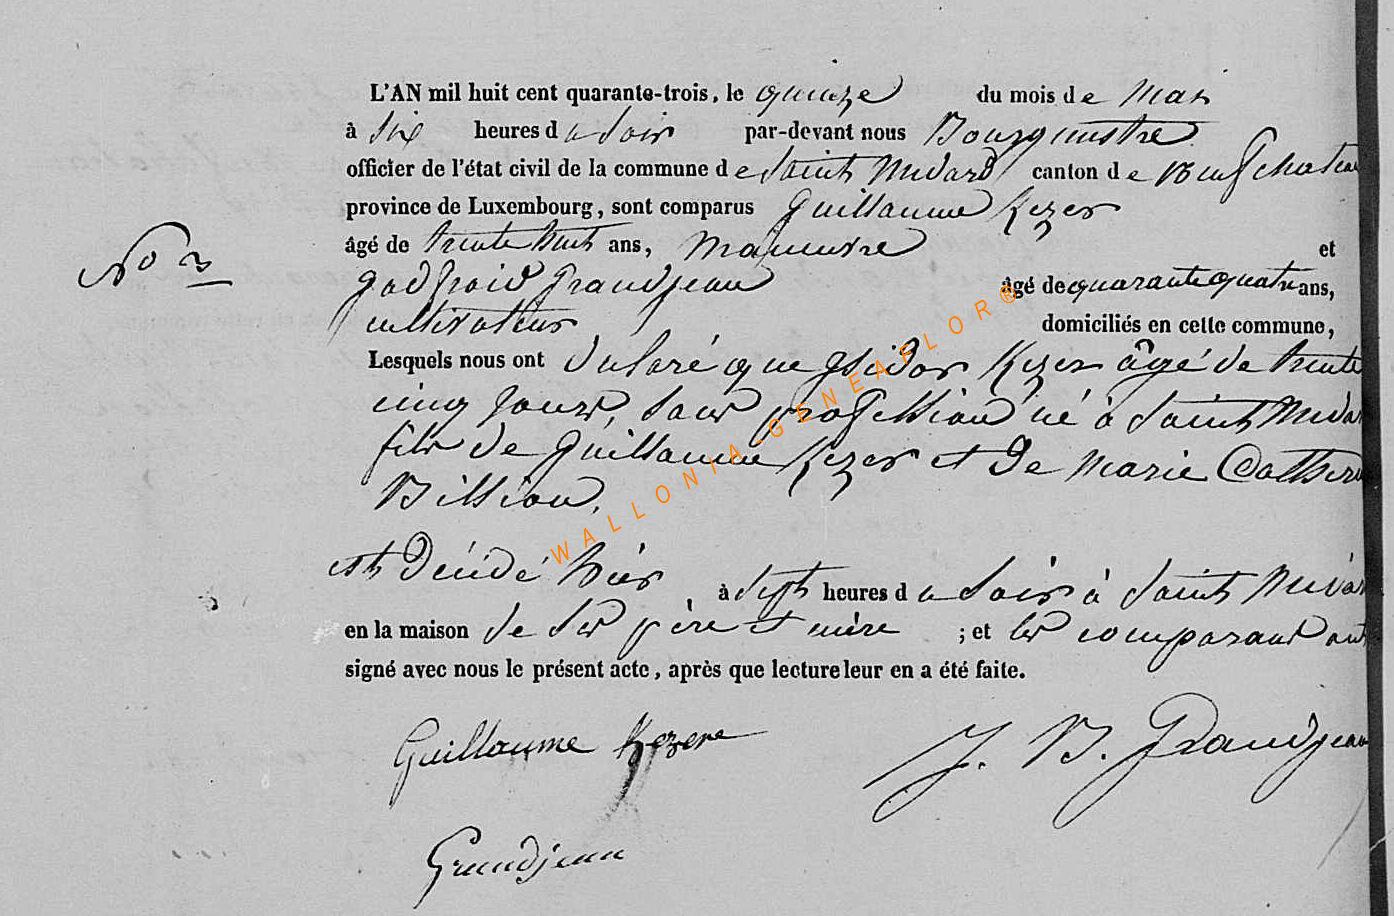 L'AN mil huit cent quarante-trois, le quinze du mois de Mai
à six heures du soir par-devant nous Bourgmestre
officier de l'état civil de la commune de Saint Médard canton de Neufchateau
province de Luxembourg, sont comparus Guillaume Kezer
âgé de trente huit ans, manuvre et
No 3
godfroid grandjean âgé de quarante quatre ans,
cultivateur domiciliés en cette commune,
Lesquels nous ont déclaré que Isidor Kezer âgé de trente
cinq jours, sans profession né à Saint Médar
fils de Guillaume Kezer et de Marie Catherine
Billion,
est décédé hier à sept heures du soir à Saint Médar
en la maison de ses père et mère ; et les comparans ont
signé avec nous le présent acte, après que lecture leur en a été faite.
Guillaume Kezere J. B. Grandjean
Grandjean
WALLONIA-GENEAFLOR®